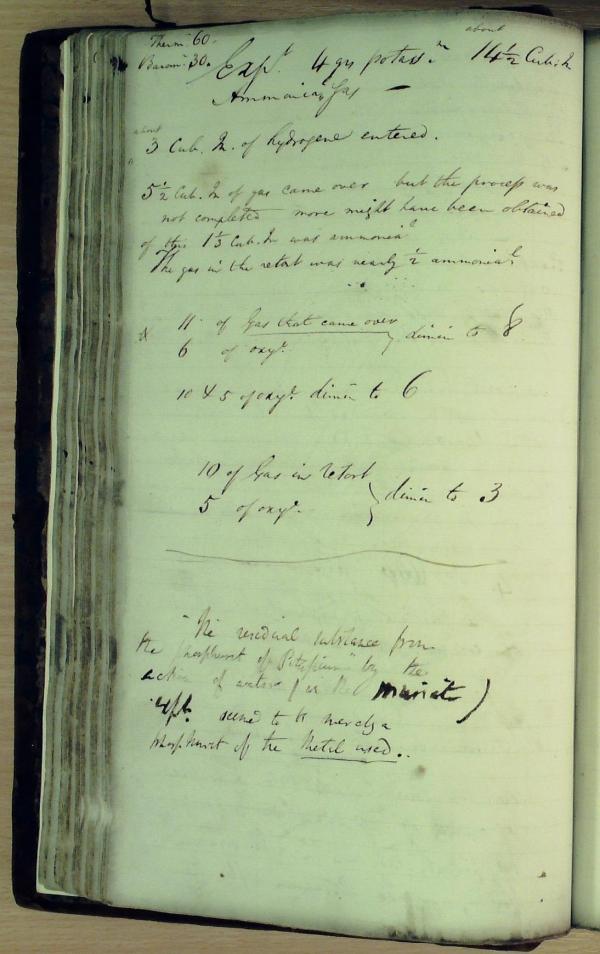 Therm. 60.
Barom. 30.
about
Expt. 4 grs potass.m 14½ Cub: In
Ammoniacl Gas —
about
3 Cub. In. of hydrogene entered.
5½ Cub. In of gas came over but the process was
not completed more might have been obtained
of this 1⅓ Cub. In was ammoniacl
The gas in the retort was nearly ½ ammoniacl
11 of Gas that came over
6 of oxyn. } dimin to 8
10 & 5 of oxyn. dimin to 6
10 of Gas in retort
5 of oxyn. } dimin to 3
The residual substance from
the phosphuret of Potassium by the
action of water (in the muriate)
expt. seemed to be merely a
phosphuret of the Metal used..